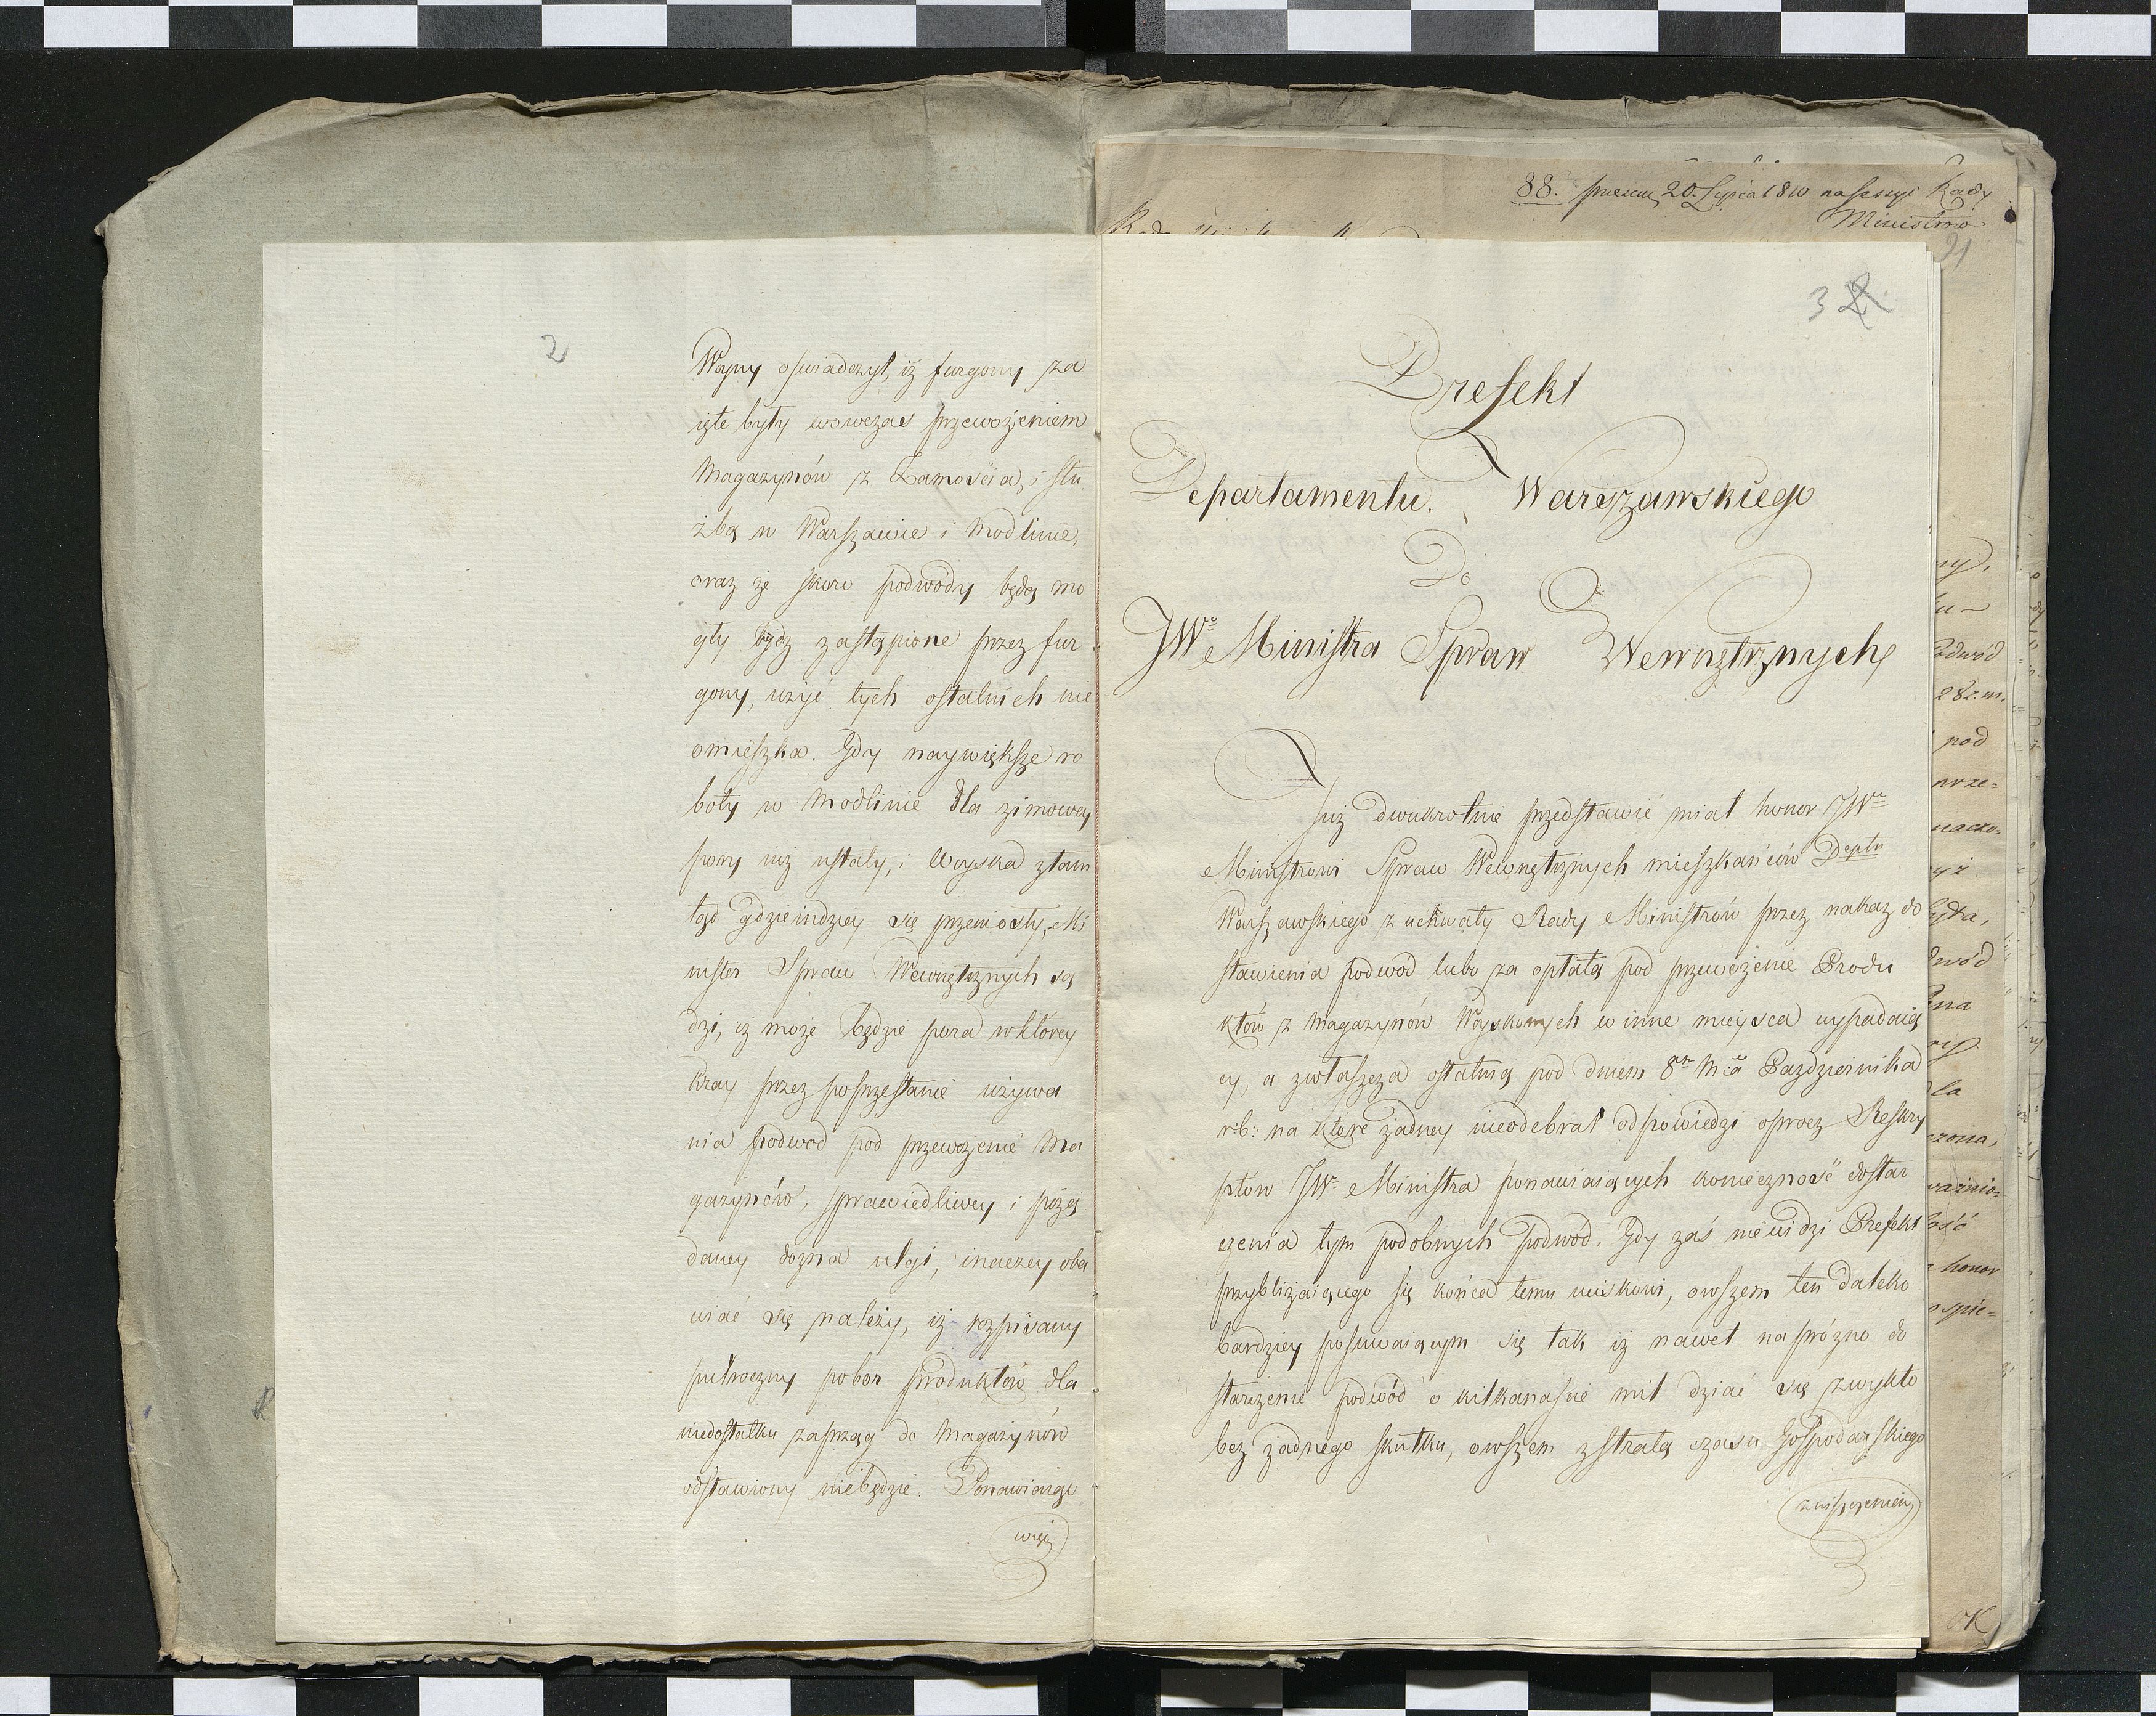 2
Woyny oswiadczył, iż furgony za
ięte były wowczas przewożeniem
Magazynów z Zamościa, i słu
żbą w Warszawie i Modlinie,
oraz że skoro podwody będą mo
gły bydz zastąpione przez fur
gony, użyć tych ostatnich nie
omieszka. Gdy naywiększe ro
boty w Modlinie dla zimowey
pory iuż ustały, i Woyska ztam
tąd gdzieindziey się przeniosły, Mi
nister Spraw Wewnętrznych są
dzi, iż może będzie pora w którey
kray przez poprzestanie używa
nia podwod pod przewożenie Ma
gazynów, sprawiedliwey i pożą
daney dozna ulgi, inaczey oba
wiać się należy, iż rozpisany
pułroczny pobor produktów dla
niedostatku zaprzęg do Magazynów
odstawiony niebędzie. Ponawiaiąc
więc
88. 20. Lipca 1810 na Sessyi Rady
Ministrów
91
3 2
Prefekt
Departamentu Warszawskiego
Do
JWo Ministra Spraw Wewnętrznych
Już dwukrotnie przedstawić miał honor JWu
Ministrowi Spraw Wewnętrznych mieszkańców Deptu
Warszawskiego z uchwały Rady Ministrów przez nakaz do
stawienia podwod lubo za opłatą pod przewożenie Produ
któw z Magazynów Woyskowych w inne mieysca wypadaią
cy, a zwłaszcza ostatnią pod dniem 8m Mca Pazdziernika
r:b: na które żadney nieodebrał odpowiedzi oprocz Reskry
ptów JW Ministra ponawiaiących konieczność dostar
czenia tym podobnych podwod. Gdy zaś niewidzi Prefekt
przybliżaiącego się końca temu uciskowi, owszem ten daleko
bardziey posuwaiącym się tak iż nawet napróżno do
starczenie podwód o kilkanascie mil dziać się zwykło
bez żadnego skutku, owszem z stratą czasu Gospodarskiego
zniszczeniem